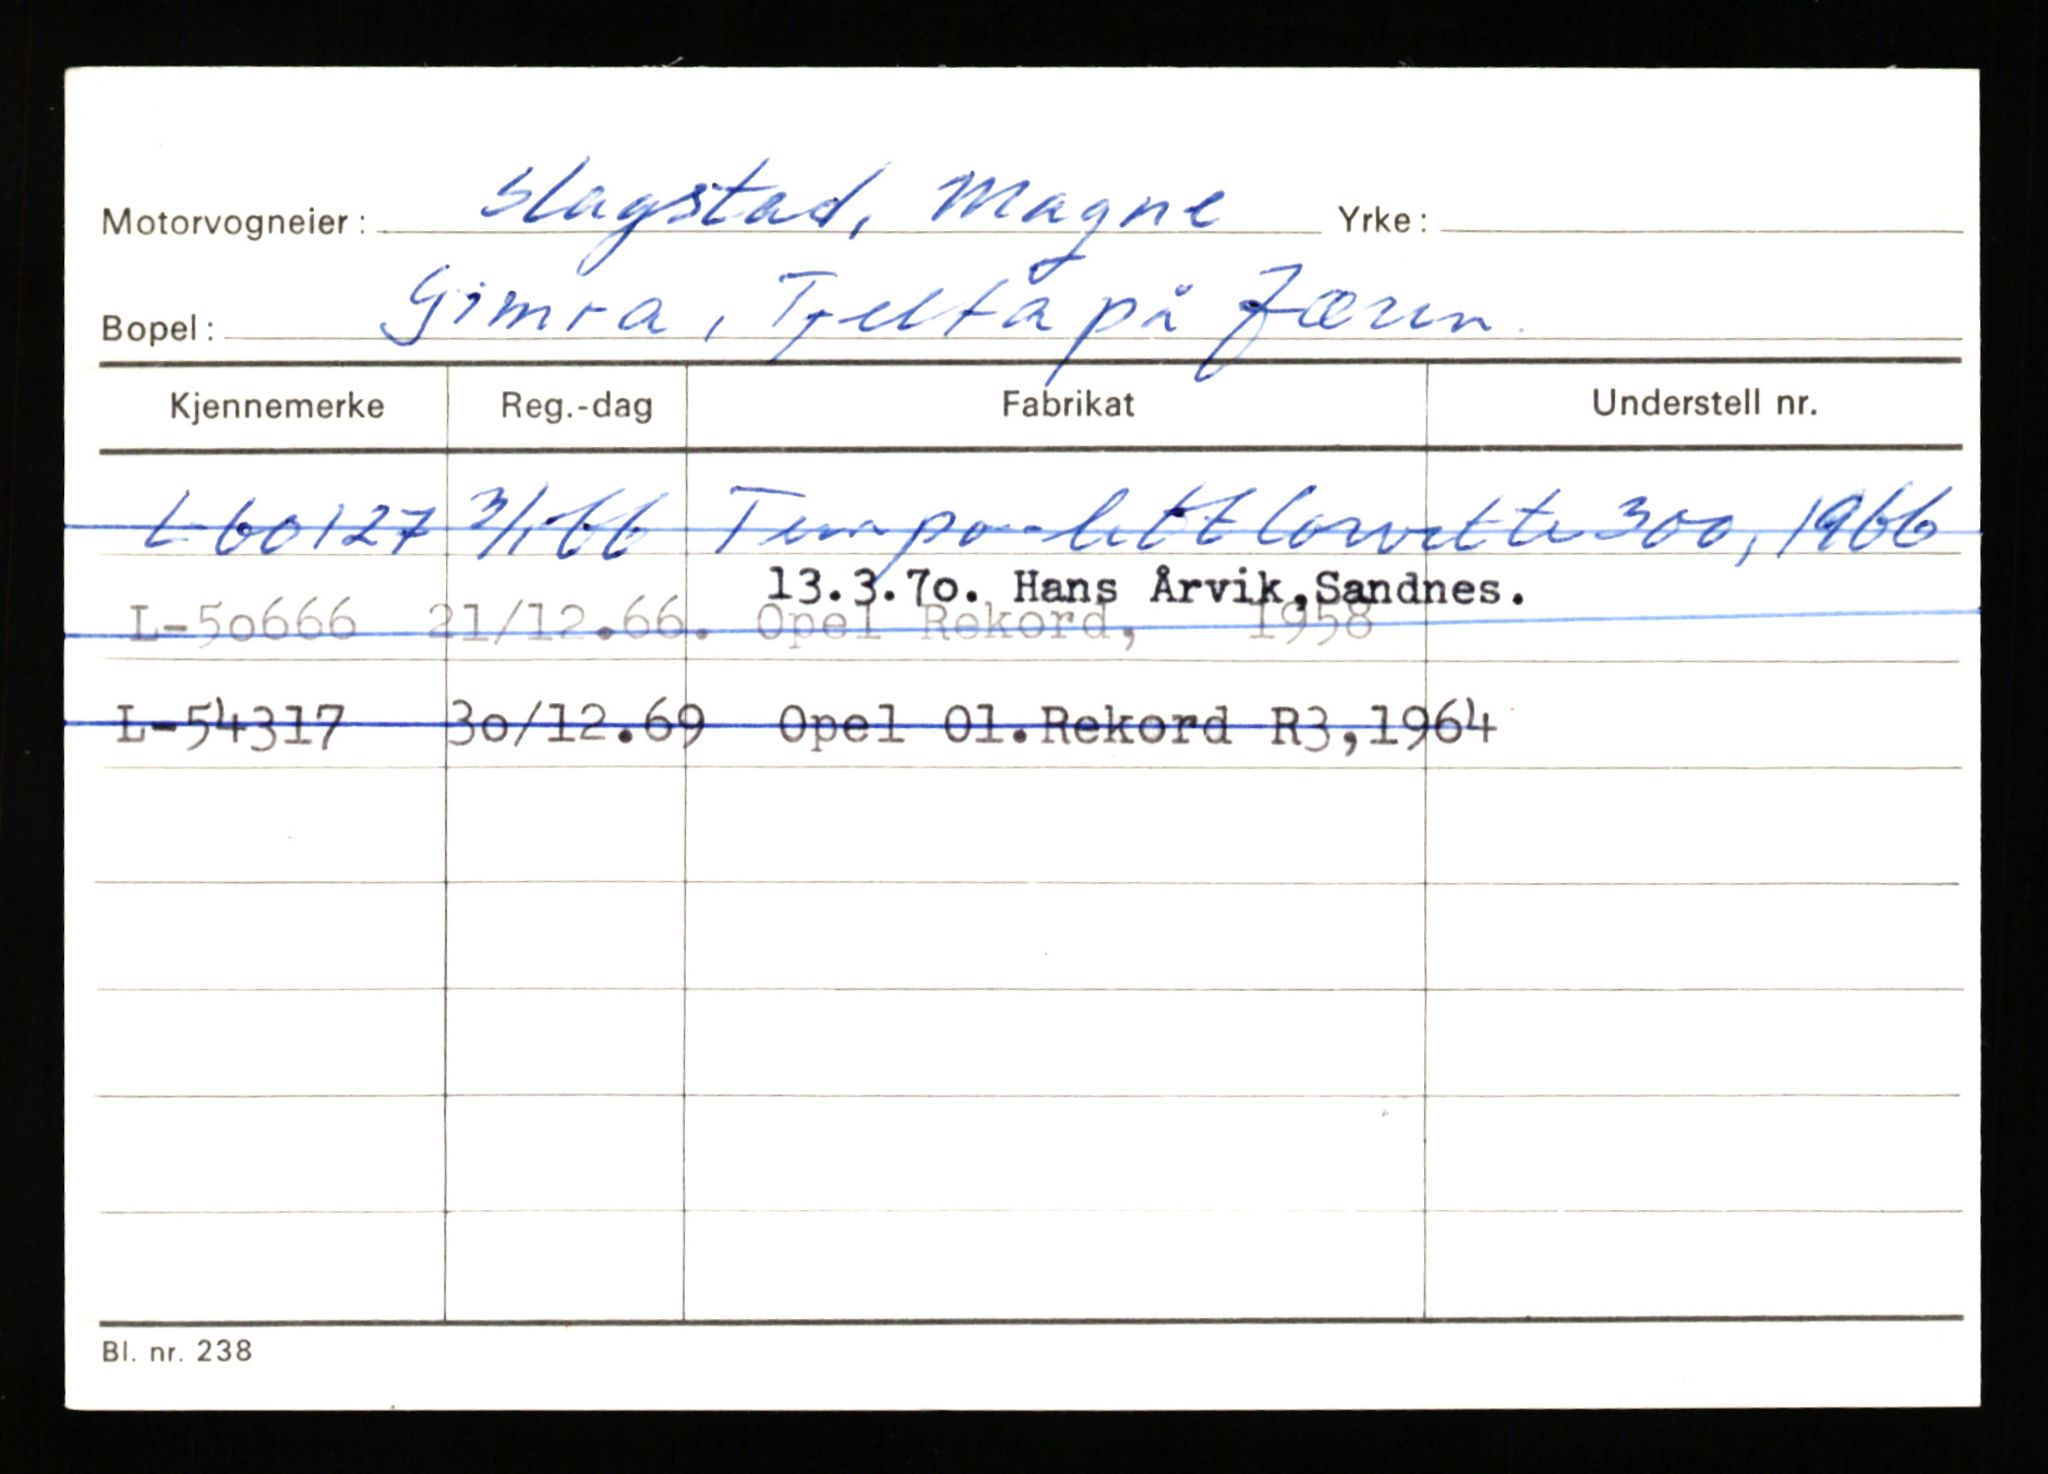 Motorvogneier: Slagstad, Magne Yrke:
Bopel: Gimra, Tjelta på Jæren.
Kjennemerke Reg.-dag Fabrikat Understell nr.
L-60127 3/1-66 Tempo-lett Corvette 300, 1966
13.3.7o. Hans Årvik,Sandnes.
L-5o666 21/12.66. Opel Rekord, 1958
L-54317 3o/12.69 Opel Ol.Rekord R3,1964
Bl. nr. 238